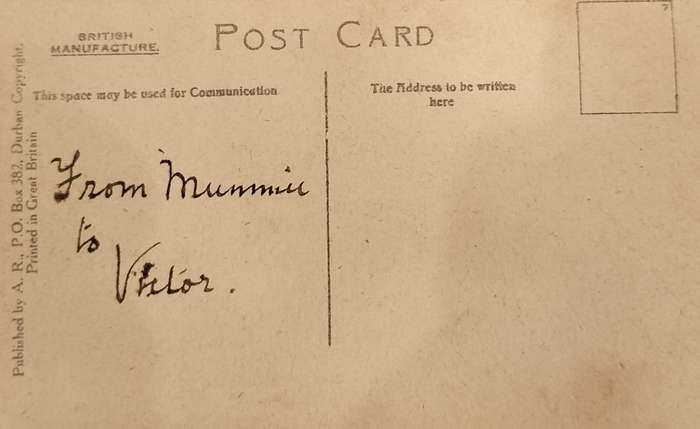 BRITISH
MANUFACTURE.
POST CARD
This space may be used for Communication
The Address to be written
here
7
From Mummie
to
Victor.
Published by A. R., P.O. Box 382, Durban Copyright.
Printed in Great Britain